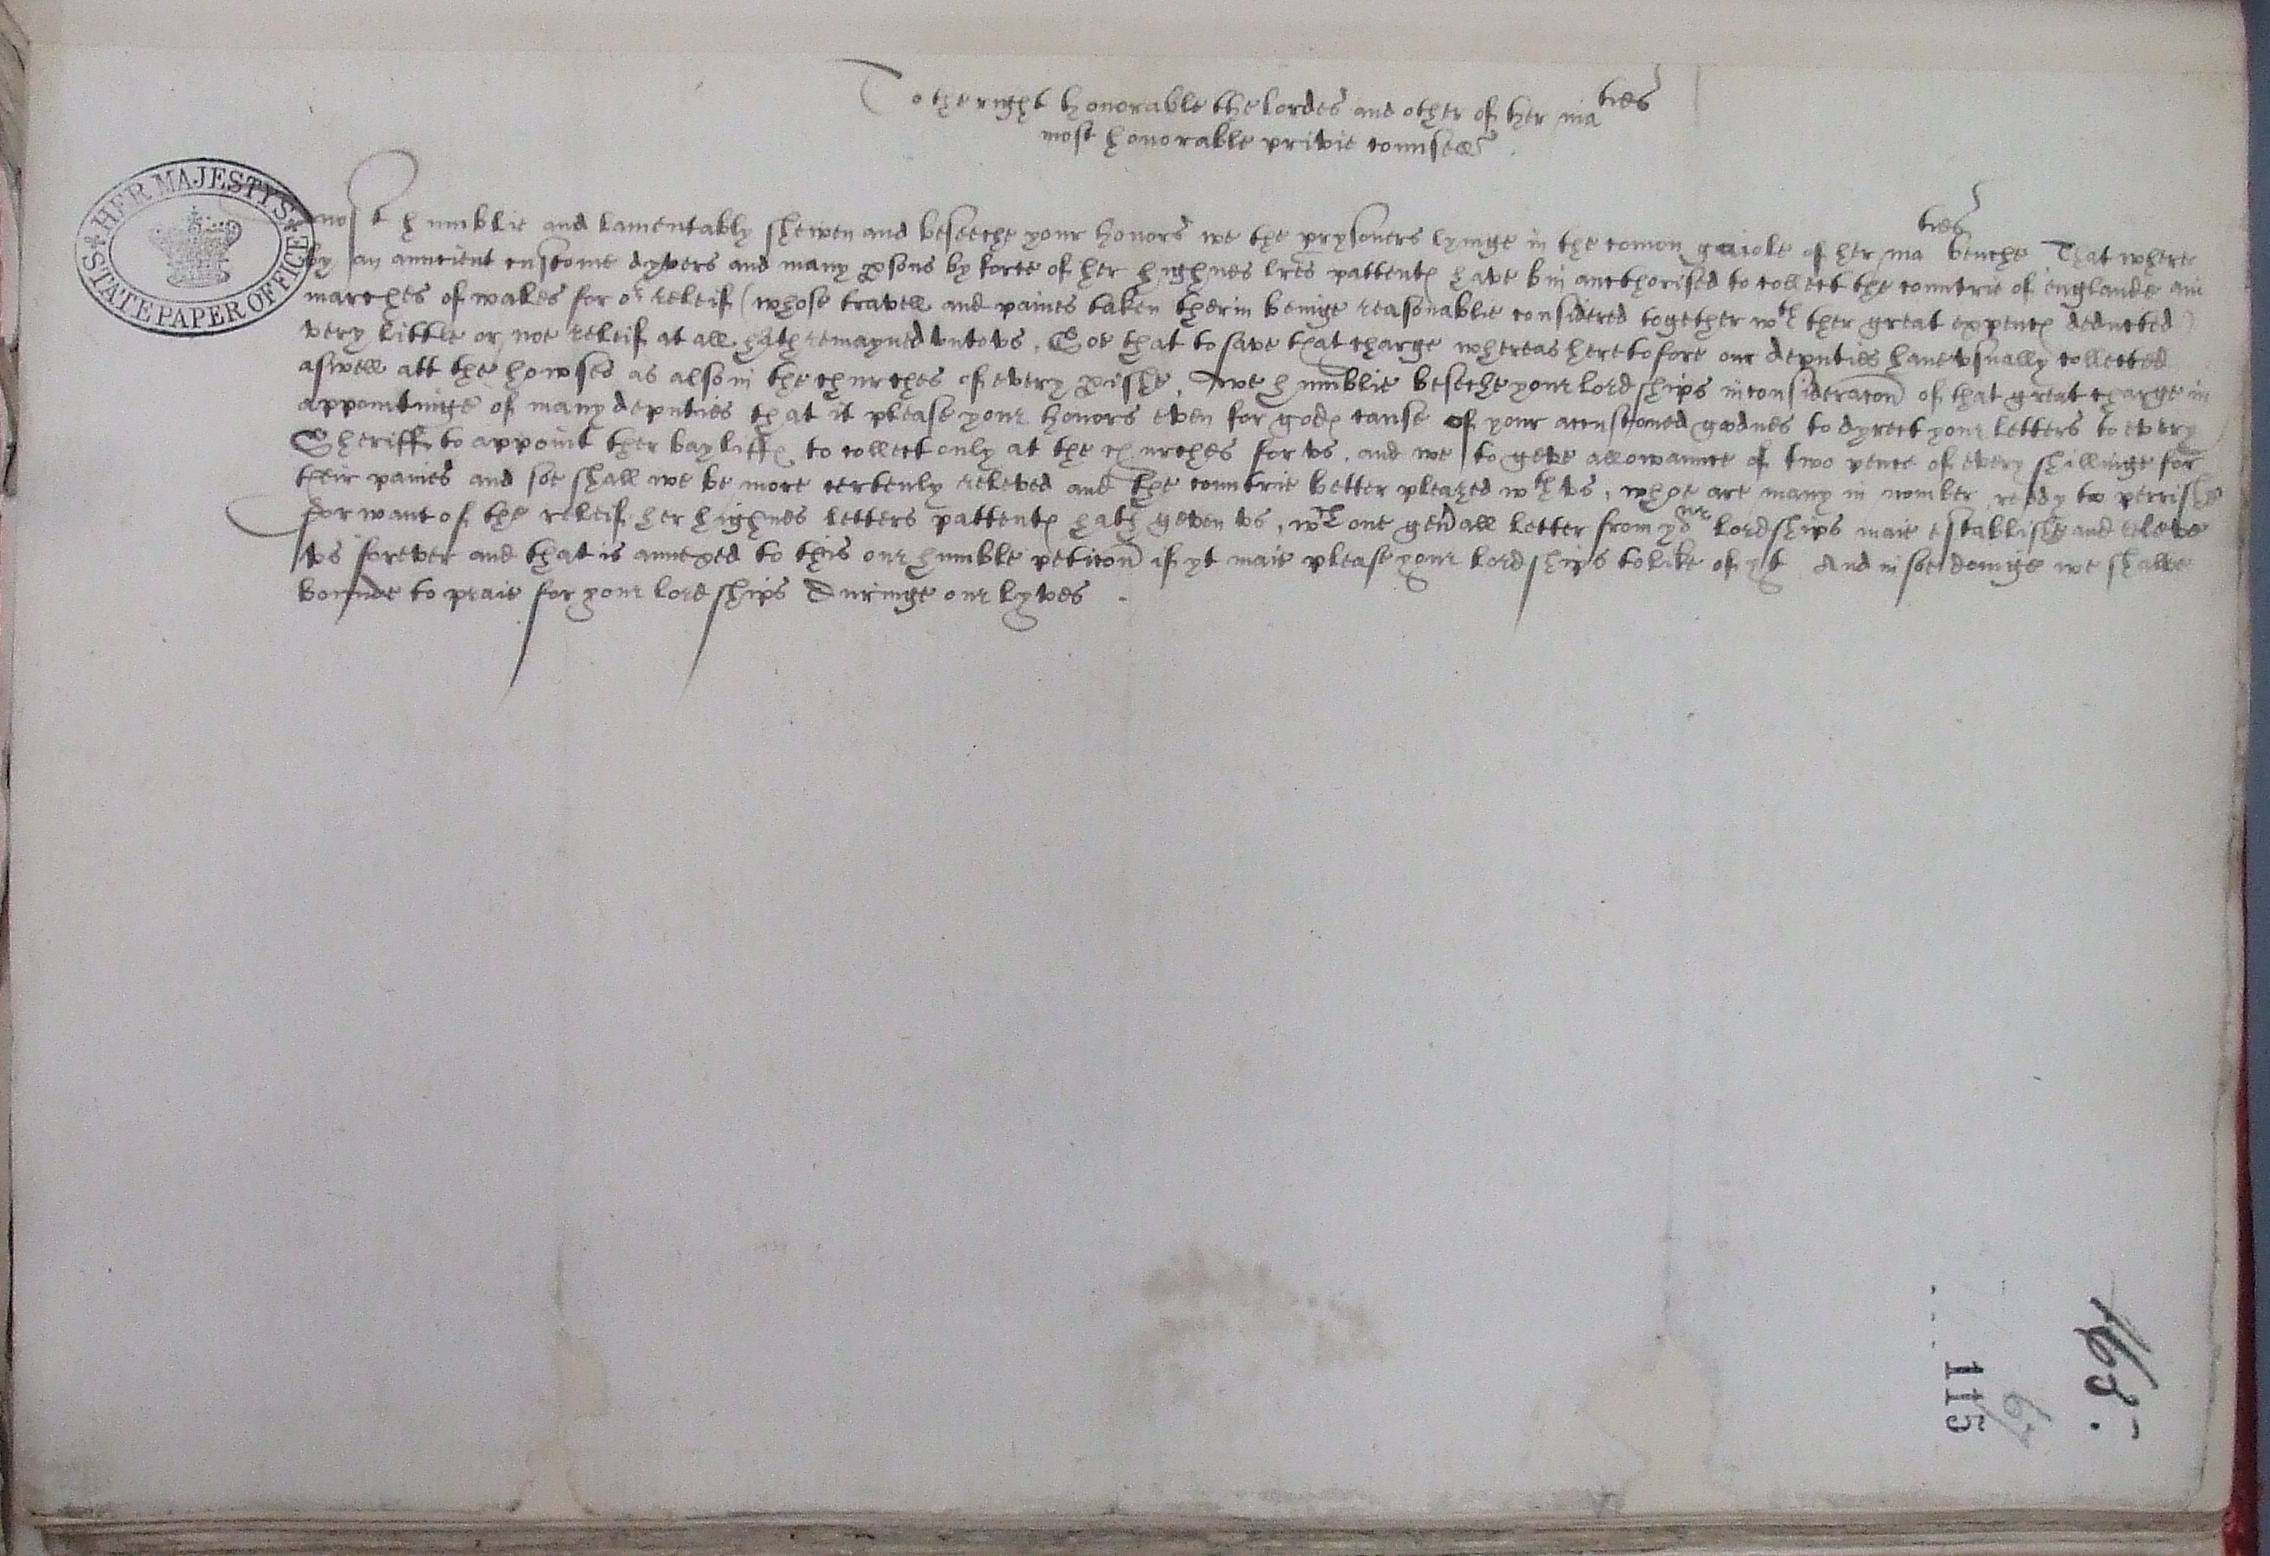 To the right honorable the lordes and other of her maties
most honorable privie counsell.
HER MAJESTYS
STATE PAPER OFFICE
most humblie and lamentably shewen and beseeche your honors we the prysoners lyinge in the comon gaiole of her maties benche That where
by an auncient custome dyvers and many psons by force of her highnes lres pattents have bin aucthorised to collect the countrie of englande and
marches of wales for or releif (whose travell and paines taken therin beinge reasonablie considered together wth ther great expences deducted)
very little or noe releif at all hath remayned unto us. Soe that to save that charge whereas heretofore our deputies have usually collected
aswell att the howses as also in the churches of every pishe, we humblie beseche your lordships in consideracon of that great charge in
appointinge of many deputies that it please your honors even for gods cause of your accustomed goodnes to dyrect your letters to every
Sheriff to appoint ther bayliffs to collect only at the churches for us. and we to geve allowaunce of two pence of every shillinge for
their paines and soe shall we be more certenly releved and the countrie better pleazed wth us, whoe are many in nomber reddy to perrishe
for want of the releif her highnes letters pattents hath geven us, wch one genall letter from yor lordships maie establishe and releve
us forever and that is annexed to this our humble peticon if yt maie please your lordships to like of yt And in soe doinge we shalbe
bounde to praie for your lordships Duringe our lyves.
115